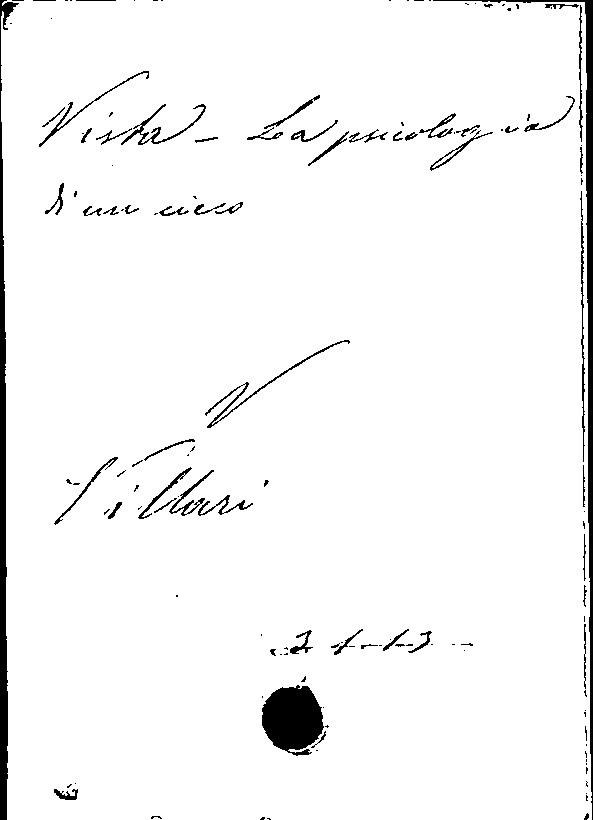 Vista - La psicologia
di un cieco
V
Villari